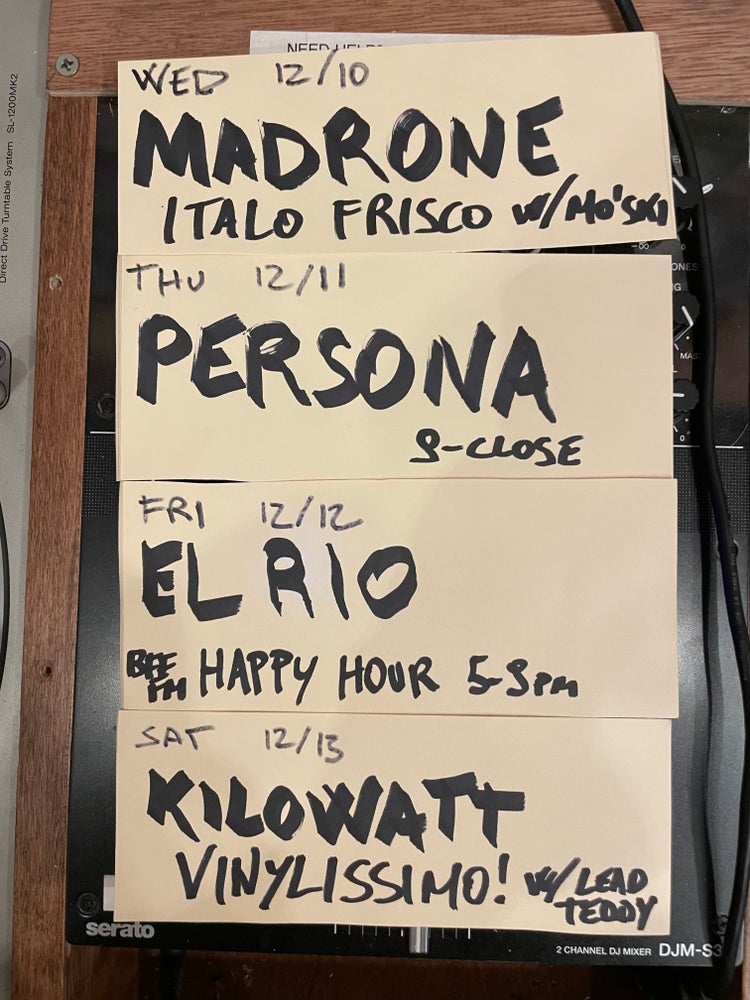 WED 12/10
MADRONE
ITALO FRISCO W/MO'SKI
THU 12/11
PERSONA
9-CLOSE
FRI 12/12
EL RIO
BFF
FM HAPPY HOUR 5-9PM
SAT 12/13
KILOWATT
VINYLISSIMO! W/ LEAD
TEDDY
serato
2 CHANNEL DJ MIXER DJM-S3
Direct Drive Turntable System SL-1200MK2